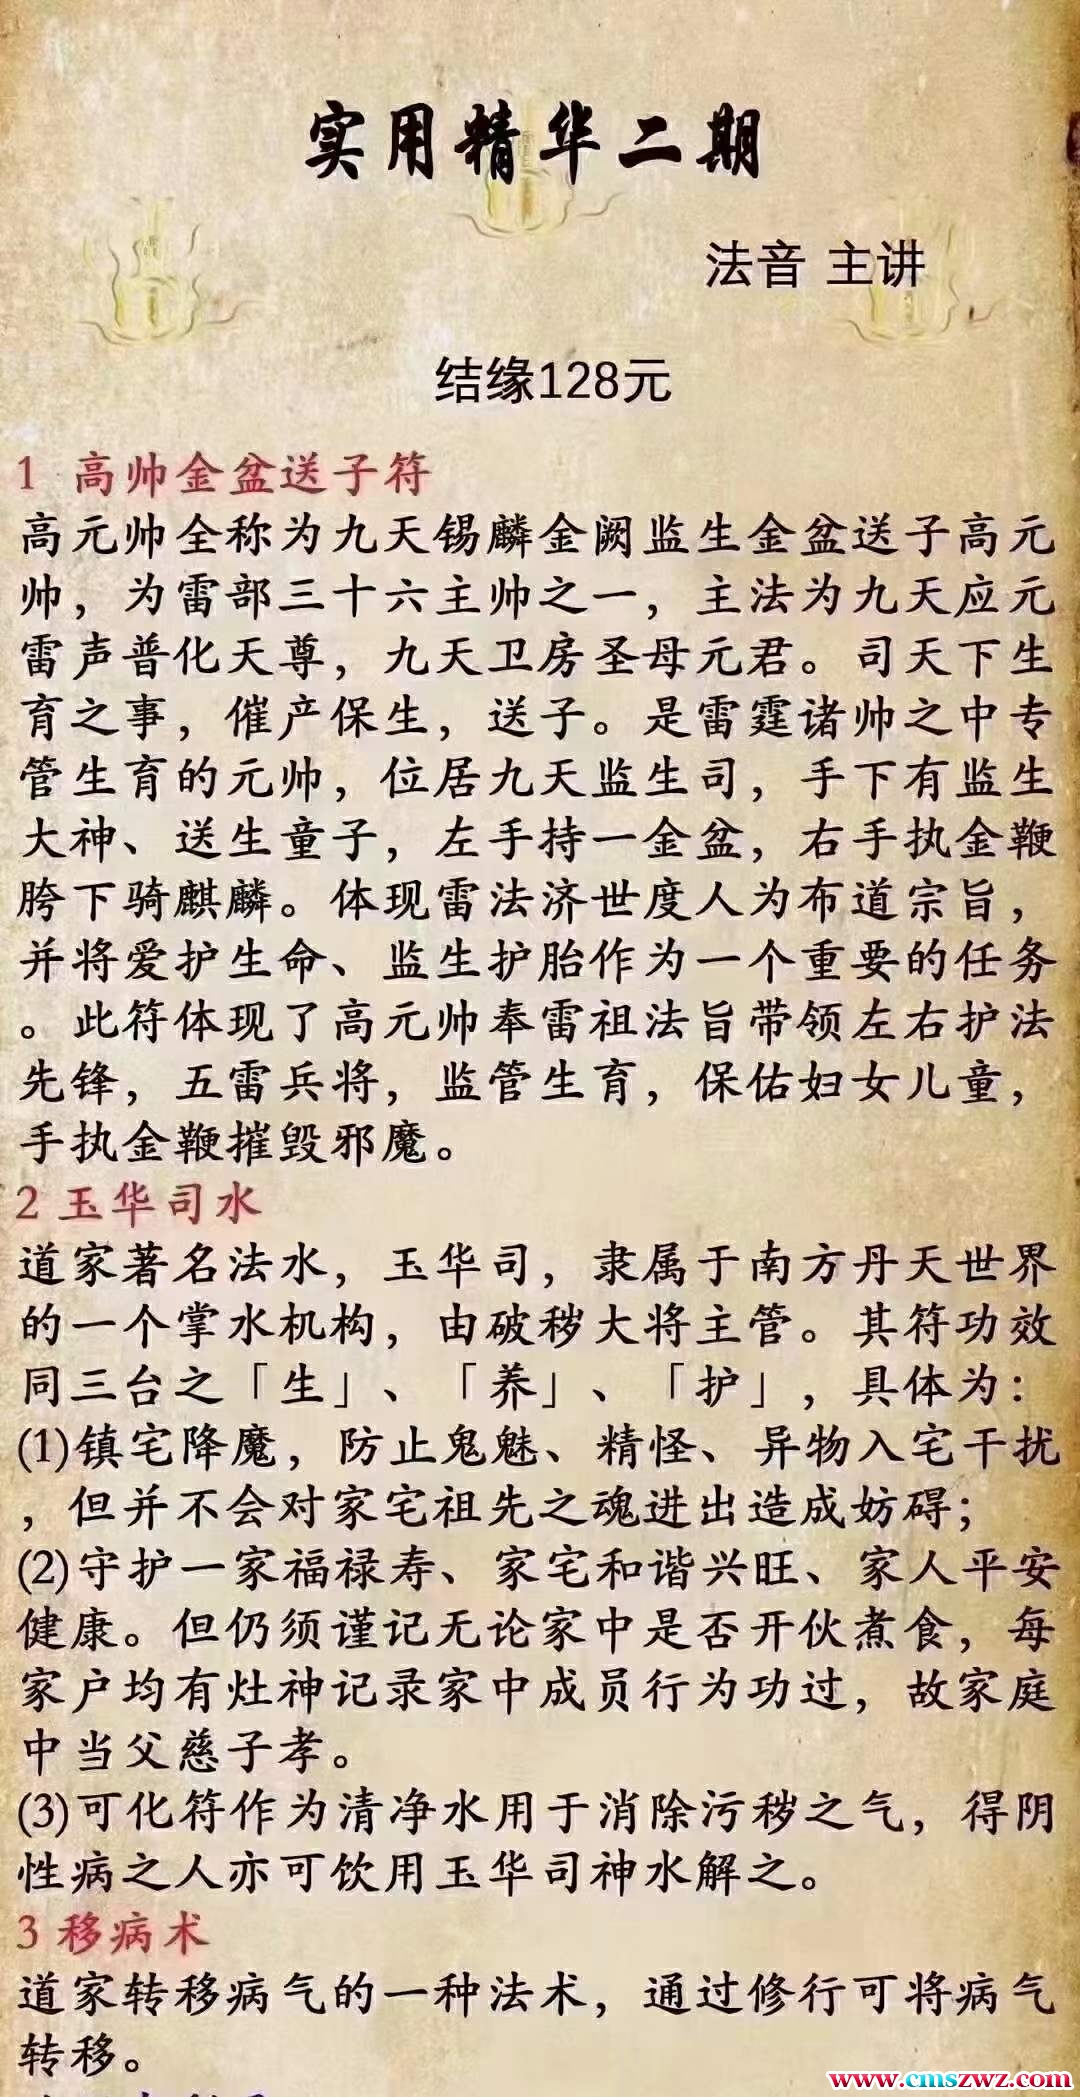 实用精华二期
法音 主讲
结缘128元
1 高帅金盆送子符
高元帅全称为九天锡麟金阙监生金盆送子高元
帅，为雷部三十六主帅之一，主法为九天应元
雷声普化天尊，九天卫房圣母元君。司天下生
育之事，催产保生，送子。是雷霆诸帅之中专
管生育的元帅，位居九天监生司，手下有监生
大神、送生童子，左手持一金盆，右手执金鞭
胯下骑麒麟。体现雷法济世度人为布道宗旨，
并将爱护生命、监生护胎作为一个重要的任务
。此符体现了高元帅奉雷祖法旨带领左右护法
先锋，五雷兵将，监管生育，保佑妇女儿童，
手执金鞭摧毁邪魔。
2 玉华司水
道家著名法水，玉华司，隶属于南方丹天世界
的一个掌水机构，由破秽大将主管。其符功效
同三台之「生」、「养」、「护」，具体为：
(1)镇宅降魔，防止鬼魅、精怪、异物入宅干扰
，但并不会对家宅祖先之魂进出造成妨碍；
(2)守护一家福禄寿、家宅和谐兴旺、家人平安
健康。但仍须谨记无论家中是否开伙煮食，每
家户均有灶神记录家中成员行为功过，故家庭
中当父慈子孝。
(3)可化符作为清净水用于消除污秽之气，得阴
性病之人亦可饮用玉华司神水解之。
3 移病术
道家转移病气的一种法术，通过修行可将病气
转移。
www.cmszwz.com